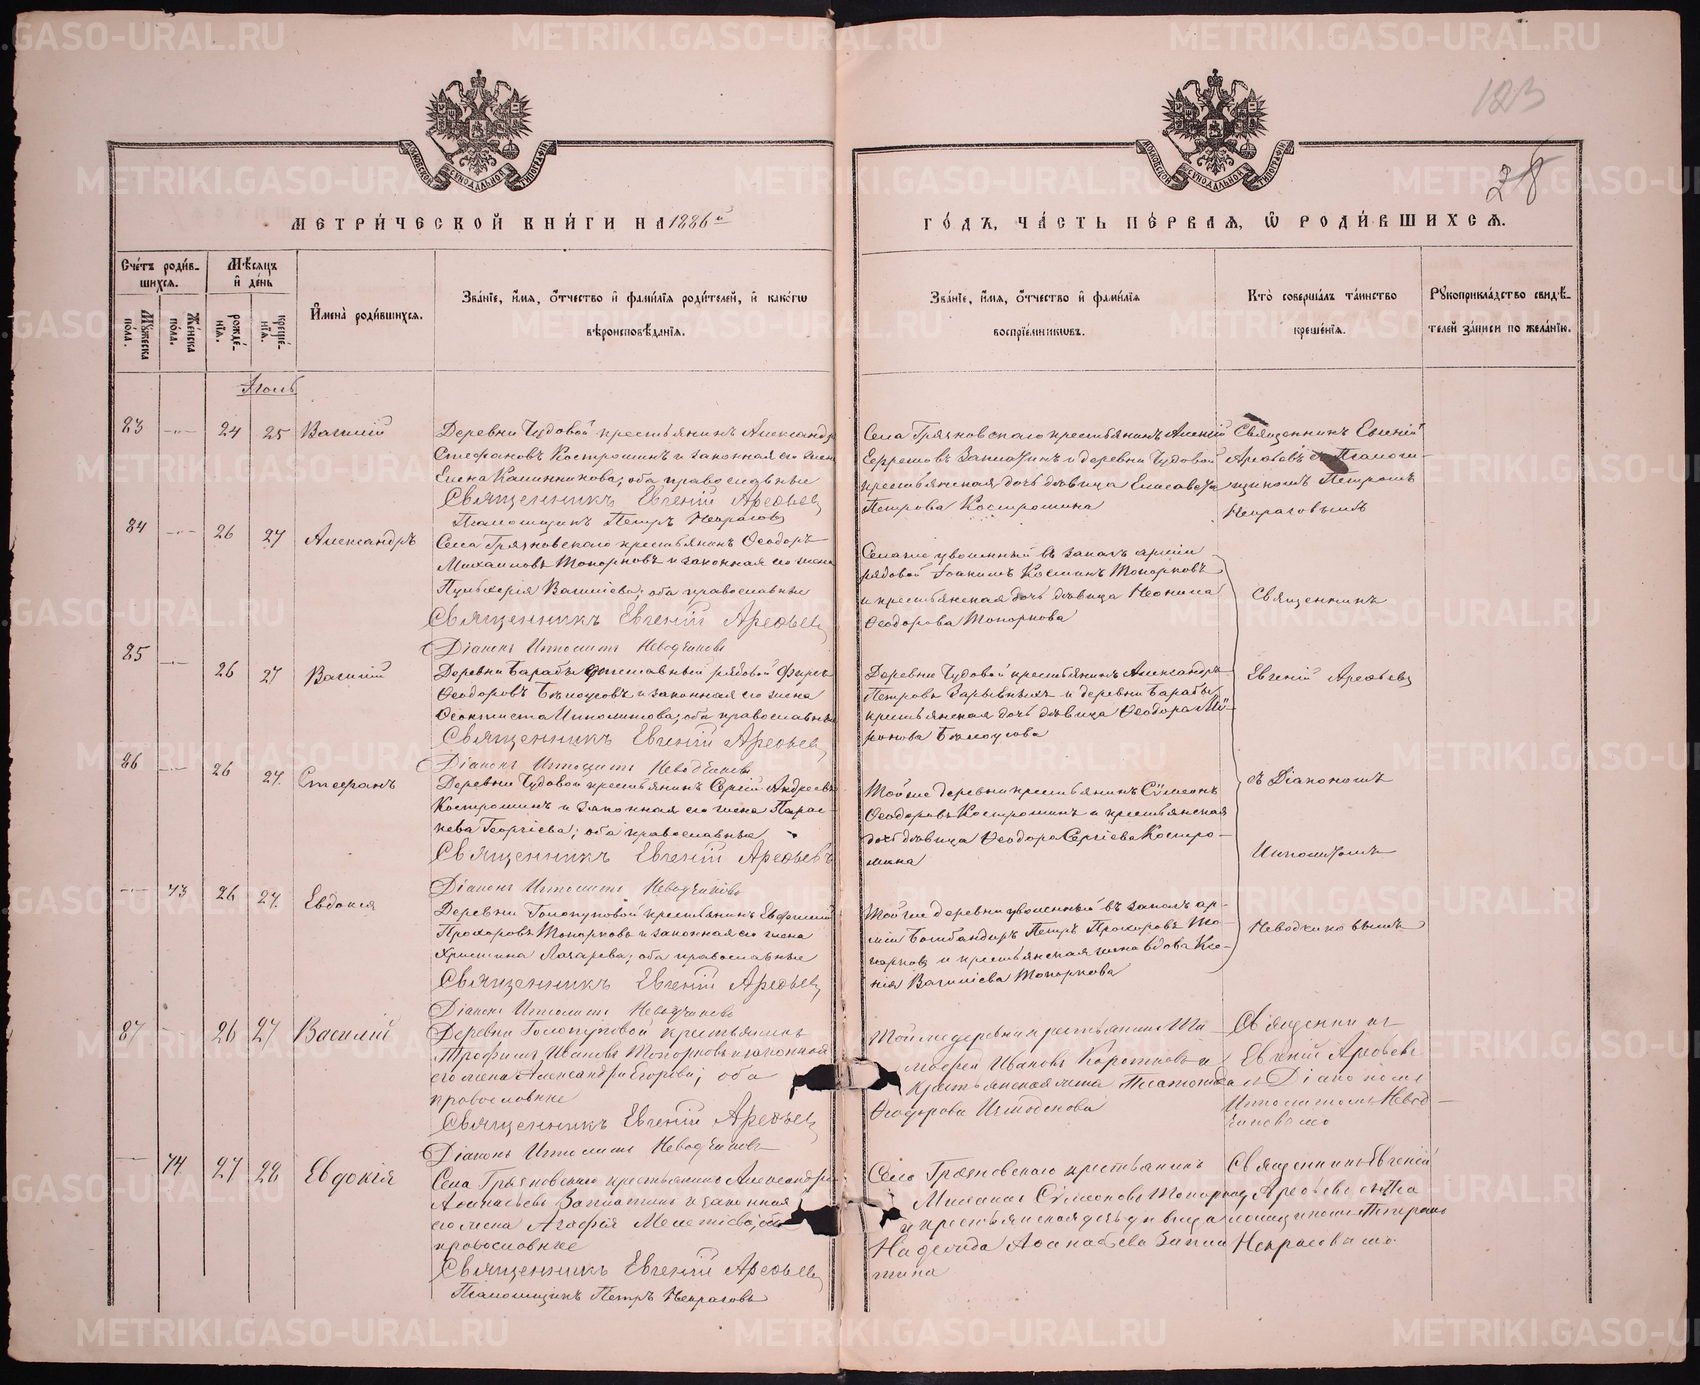 123
28
МЕТРИ́ЧЕСКОЙ КНИ́ГИ НА 1886й
ГО́ДЪ, ЧА́СТЬ ПЕ́РВАЯ, Ѽ РОДИ́ВШИХСЯ.
Сче́тъ роди́в-
шихся.
Мѣ́сяцъ
и де́нь
Му́жеска по́ла.
Же́нска по́ла.
рожде́нїя.
креще́нїя.
Имена̀ роди́вшихся.
Зва́нїе, и́мя, о́тчество и фами́лїя роди́телей, и како́гѡ
вѣроисповѣ́данїя.
Зва́нїе, и́мя, о́тчество и фами́лїя
воспрїе́мникѡвъ.
Кто̀ соверша́лъ та́инство
креще́нїя.
Рꙋкоприкла́дство свидѣ́-
телей за́писи по жела́нїю.
Іюль
83 — 24 25 Василій
Деревни Чудовой крестьянинъ Александръ
Стефановъ Костроминъ и законная его жена
Елена Калинникова; оба православные
Священникъ Евгеній Арефьевъ
Псаломщикъ Петръ Некрасовъ
Села Грязновскаго крестьянинъ Алексій
Сергеевъ Заплатинъ и деревни Чудовой
крестьянская дочь дѣвица Елисавета
Петрова Костромина
Священникъ Евгеній
Арефьевъ съ Псалом-
щикомъ Петромъ
Некрасовымъ
84 — 26 27 Александръ
Села Грязновскаго крестьянинъ Ѳеодоръ
Михаиловъ Топорковъ и законная его жена
Пульхерія Василіева; оба православные
Священникъ Евгеній Арефьевъ
Діаконъ Ипполитъ Неводчиковъ
Села же уволенный въ запасъ арміи
рядовой Іоакимъ Косминъ Топорковъ
и крестьянская дочь дѣвица Неонила
Ѳеодорова Топоркова
Священникъ
85 — 26 27 Василій
Деревни Барабы отставный рядовой Фирсъ
Ѳеодоровъ Бѣлоусовъ и законная его жена
Ѳеоктиста Ипполитова; оба православные
Священникъ Евгеній Арефьевъ
Діаконъ Ипполитъ Неводчиковъ
Деревни Чудовой крестьянинъ Александръ
Петровъ Зарывныхъ и деревни Барабы
крестьянская дочь дѣвица Ѳеодора Ми-
ронова Бѣлоусова
Евгеній Арефьевъ
86 — 26 27. Стефанъ
Деревни Чудовой крестьянинъ Сергій Андреевъ
Костроминъ и законная его жена Парас-
кева Георгіева; оба православные
Священникъ Евгеній Арефьевъ
Діаконъ Ипполитъ Неводчиковъ
Той же деревни крестьянинъ Сѵмеонъ
Ѳеодоровъ Костроминъ и крестьянская
дочь дѣвица Ѳеодора Сергіева Костро-
мина
съ Діакономъ
Ипполитомъ
— 73 26 27. Евдокія
Деревни Голопуповой крестьянинъ Евфимій
Прохоровъ Топорковъ и законная его жена
Христина Лазарева; оба православные
Священникъ Евгеній Арефьевъ
Діаконъ Ипполитъ Неводчиковъ
Той же деревни уволенный въ запасъ ар-
міи Бомбандиръ Петръ Прохоровъ То-
порковъ и крестьянская жена вдова Ксе-
нія Василіева Топоркова
Неводчиковымъ
87 — 26 27 Василій
Деревни Голопуповой крестьянинъ
Трофимъ Ивановъ Топорковъ и законная
его жена Александра Егорова; оба
православные
Священникъ Евгеній Арефьевъ
Діаконъ Ипполитъ Неводчиковъ
Той же деревни крестьянинъ Ти-
мофей Ивановъ Коротковъ и
крестьянская жена Платонида
Ѳеодорова Измоденова
Священникъ
Евгеній Арефьевъ
съ Діакономъ
Ипполитомъ Невод-
чиковымъ
— 74 27 28 Евдокія
Села Грязновскаго крестьянинъ Александръ
Аѳанасьевъ Заплатинъ и законная
его жена Агафія Мелетіева; оба
православные
Священникъ Евгеній Арефьевъ
Псаломщикъ Петръ Некрасовъ
Села Грязновскаго крестьянинъ
Михаилъ Сѵмеоновъ Топорковъ
и крестьянская дочь дѣвица
Надежда Аѳанасьева Запла
тина
Священникъ Евгеній
Арефьевъ съ Пса
ломщикомъ Петромъ
Некрасовымъ
METRIKI.GASO-URAL.RU